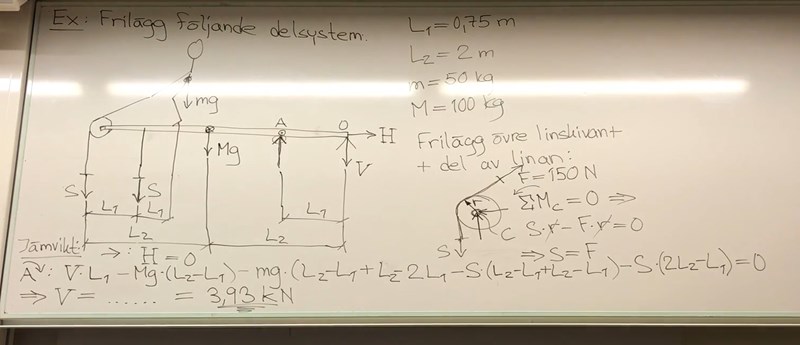 Ex: Frilägg följande delsystem.
L₁=0,75 m
L₂=2 m
m=50 kg
M=100 kg
mg
A
O
H
Mg
V
S
S
L₁
L₁
L₁
L₂
L₂
Frilägg övre linskivan+
+ del av linan:
F=150 N
r
C
S
ΣM_C=0 ⇒
S·r-F·r=0
⇒S=F
Jämvikt: →: H=0
A↷: V·L₁-Mg·(L₂-L₁)-mg·(L₂-L₁+L₂-2L₁-S·(L₂-L₁+L₂-L₁)-S·(2L₂-L₁)=0
⇒ V= ...... = 3,93 kN